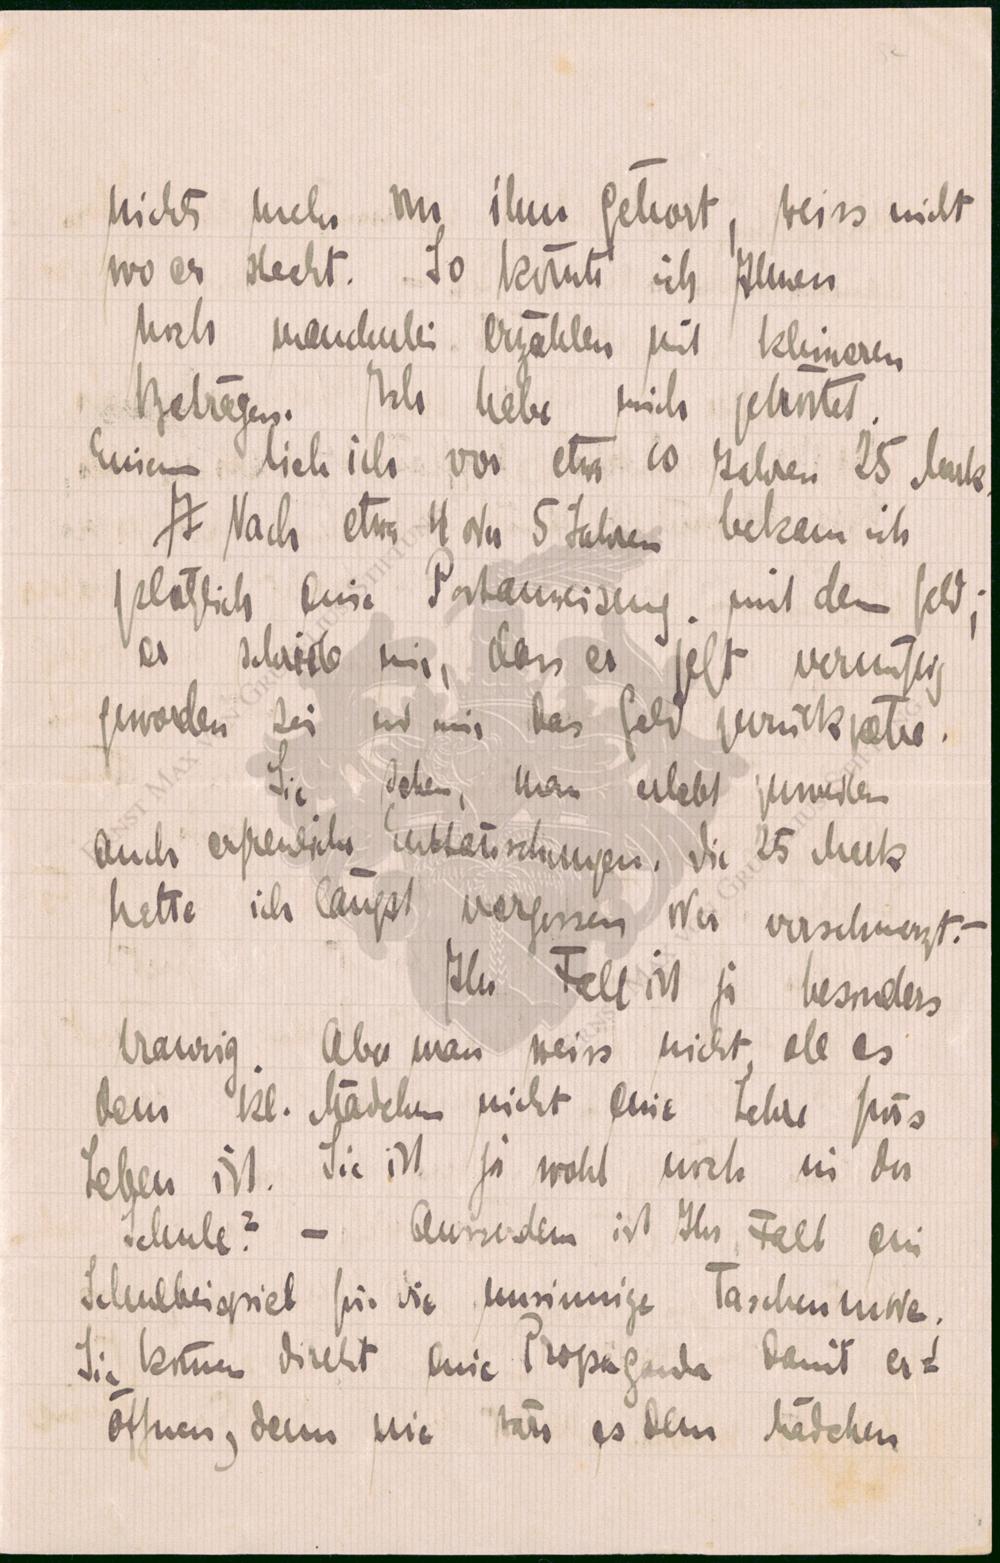 nichts mehr von ihm gehört, weiss nicht
wo er steckt. So könnte ich Ihnen
noch mancherlei erzählen mit kleineren
Beträgen. Ich habe mich getröstet.
Einem lieh ich vor etwa 10 Jahren 25 Mark.
Nach etwa 4 oder 5 Jahren bekam ich
plötzlich eine Postanweisung mit dem Geld;
er schrieb mir, dass er jetzt vernünftig
geworden sei und mir das Geld zurückzahle.
Sie sehen, man erlebt zuweilen
auch erfreuliche Enttäuschungen. Die 25 Mark
hatte ich längst vergessen oder verschmerzt. –
Ihr Fall ist ja besonders
traurig. Aber man weiss nicht, ob es
dem kl. Mädchen nicht eine Lehre fürs
Leben ist. Sie ist ja wohl noch in der
Schule? – Ausserdem ist Ihr Fall ein
Schulbeispiel für die unsinnige Taschenmode.
Sie können direkt eine Propaganda damit er=
öffnen, denn nie wäre es dem Mädchen